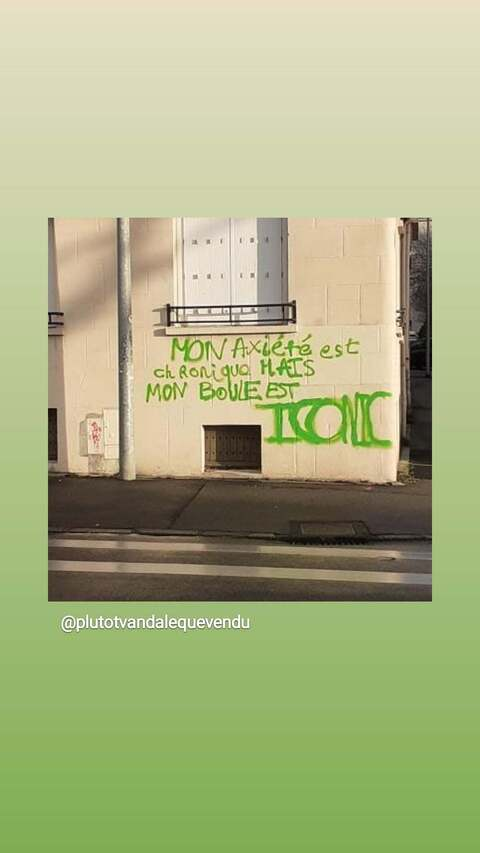 MON Axiété est
chRonique MAIS
MON BOULE EST
ICONIC
@plutotvandalequevendu